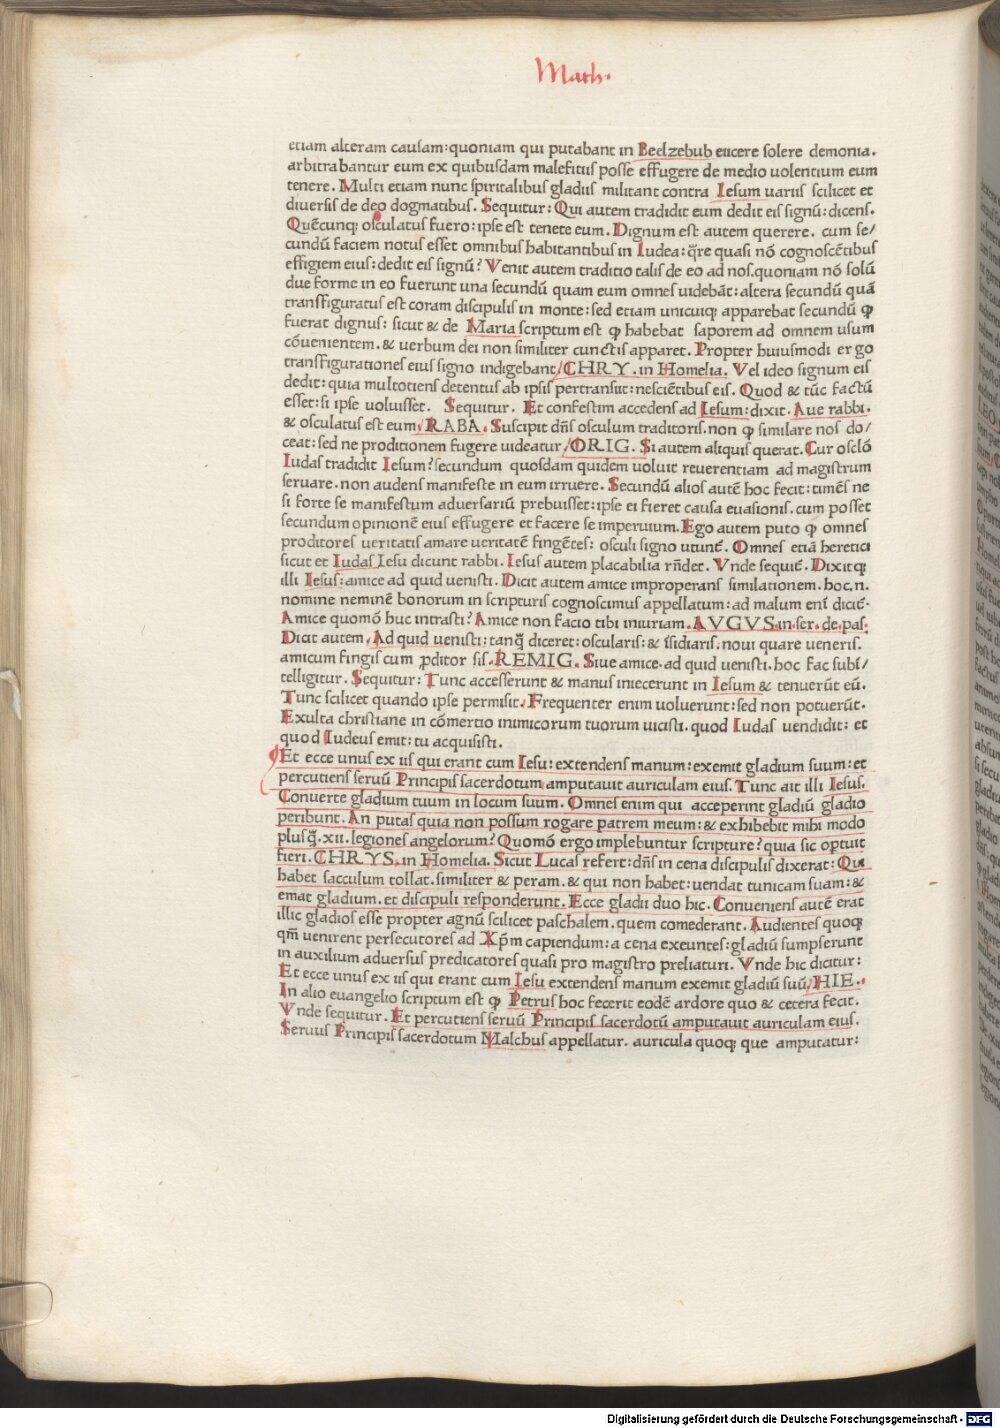 Math.
etiam alteram causam: quoniam qui putabant in Beelzebub eiicere solere demonia.
arbitrabantur eum ex quibusdam malefitiis posse effugere de medio uolentium eum
tenere. Multi etiam nunc spiritalibus gladiis militant contra Iesum uariis scilicet et
diuersis de deo dogmatibus. Sequitur: Qui autem tradidit eum dedit eis signū: dicens.
Quēcunq; osculatus fuero: ipse est tenete eum. Dignum est autem querere. cum se/
cundū faciem notus esset omnibus habitantibus in Iudea: q̄re quasi nō cognoscētibus
effigiem eius: dedit eis signū? Venit autem traditio talis de eo ad nos. quoniam nō solū
due forme in eo fuerunt una secundū quam eum omnes uidebāt: altera secundū quā
transfiguratus est coram discipulis in monte: sed etiam unicuiq; apparebat secundū ꝙ
fuerat dignus: sicut & de Maria scriptum est ꝙ habebat saporem ad omnem usum
cōuenientem. & uerbum dei non similiter cunctis apparet. Propter huiusmodi ergo
transfigurationes eius signo indigebant/CHRY. in Homelia. Vel ideo signum eis
dedit: quia multotiens detentus ab ipsis pertransiit: nesciētibus eis. Quod & tūc factū
esset: si ipse uoluisset. Sequitur. Et confestim accedens ad Iesum: dixit. Aue rabbi.
& osculatus est eum/RABA. Suscipit dn̄s osculum traditoris. non ꝙ similare nos do/
ceat: sed ne proditionem fugere uideatur/ORIG. Si autem aliquis querat. Cur osclō
Iudas tradidit Iesum? secundum quosdam quidem uoluit reuerentiam ad magistrum
seruare. non audens manifeste in eum irruere. Secundū alios autē hoc fecit: timēs ne
si forte se manifestum aduersariū prebuisset: ipse ei fieret causa euasionis. cum posset
secundum opinionē eius effugere et facere se imperuium. Ego autem puto ꝙ omnes
proditores ueritatis amare ueritatē fingētes: osculi signo utunt̄. Omnes etiā heretici
sicut et Iudas Iesu dicunt rabbi. Iesus autem placabilia rn̄det. Vnde sequit̄. Dixitq;
illi Iesus: amice ad quid uenisti. Dicit autem amice improperans similationem. hoc.n.
nomine neminē bonorum in scripturis cognoscimus appellatum: ad malum eni̅ dicit̄.
Amice quomō huc intrasti? Amice non facio tibi iniuriam. AVGVS. in ser. de. pas.
Dicit autem. Ad quid uenisti: tanq̄ diceret: oscularis: & īsidiaris. noui quare ueneris.
amicum fingis cum ꝓditor sis. REMIG. Siue amice. ad quid uenisti. hoc fac subī/
telligitur. Sequitur: Tunc accesserunt & manus iniecerunt in Iesum & tenuerūt eū.
Tunc scilicet quando ipse permisit. Frequenter enim uoluerunt: sed non potuerūt.
Exulta christiane in cōmertio inimicorum tuorum uicisti. quod Iudas uendidit: et
quod Iudeus emit: tu acquisisti.
Et ecce unus ex iis qui erant cum Iesu: extendens manum: exemit gladium suum: et
percutiens seruū Principis sacerdotum amputauit auriculam eius. Tunc ait illi Iesus.
Conuerte gladium tuum in locum suum. Omnes enim qui acceperint gladiū gladio
peribunt. An putas quia non possum rogare patrem meum: & exhibebit mihi modo
plusq̄. xii. legiones angelorum? Quomō ergo implebuntur scripture? quia sic optuit
fieri. CHRYS. in Homelia. Sicut Lucas refert: dn̄s in cena discipulis dixerat: Qui
habet sacculum tollat. similiter & peram. & qui non habet: uendat tunicam suam: &
emat gladium. et discipuli responderunt. Ecce gladii duo hic. Conueniens autē erat
illic gladios esse propter agnū scilicet paschalem. quem comederant. Audientes quoq;
qm̄ uenirent persecutores ad Xp̄m capiendum: a cena exeuntes: gladiū sumpserunt
in auxilium aduersus predicatores quasi pro magistro preliaturi. Vnde hic dicitur:
Et ecce unus ex iis qui erant cum Iesu extendens manum exemit gladiū suū/HIE.
In alio euangelio scriptum est ꝙ Petrus hoc fecerit eodē ardore quo & cetera fecit.
Vnde sequitur. Et percutiens seruū Principis sacerdotū amputauit auriculam eius.
Seruus Principis sacerdotum Malchus appellatur. auricula quoq; que amputatur:
Digitalisierung gefördert durch die Deutsche Forschungsgemeinschaft - DFG